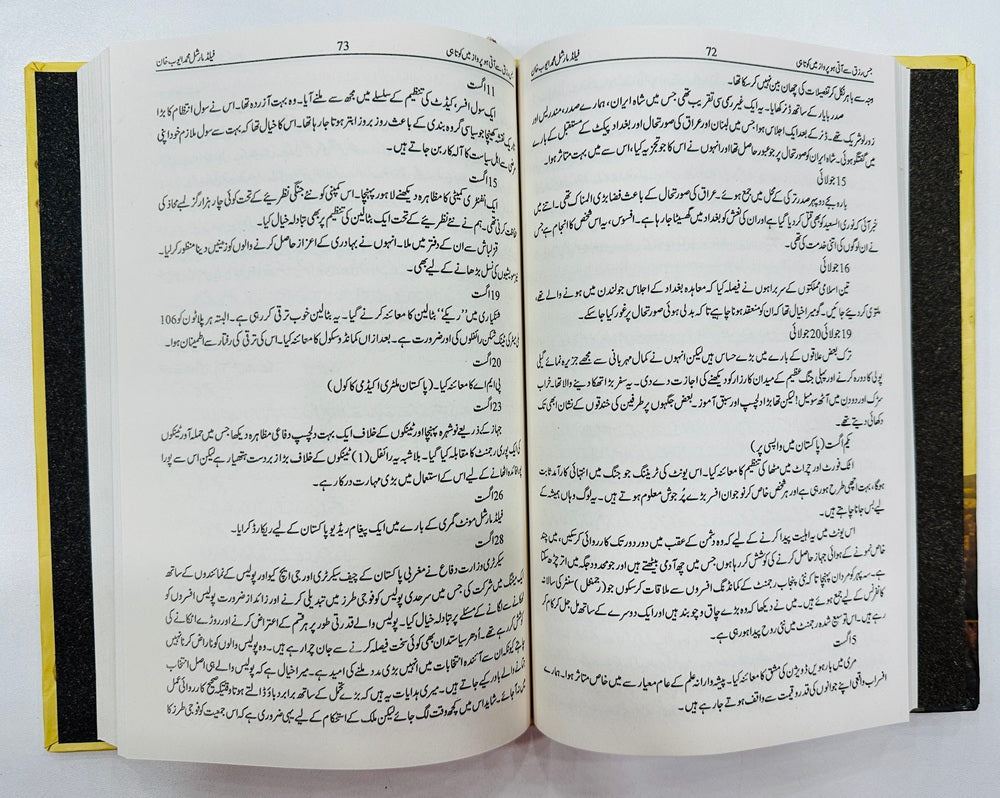 جس رزق سے آتی ہو پرواز میں کوتاہی
72
فیلڈ مارشل محمد ایوب خان
وجہ سے باہر نکل کر تفصیلات کی چھان بین نہیں کر سکا تھا۔
صدر بایار کے ساتھ ڈنر کھایا۔ یہ ایک غیر رسمی سی تقریب تھی جس میں شاہ ایران، ہمارے صدر، مندریس اور
زورلو شریک تھے۔ ڈنر کے بعد ایک اجلاس ہوا جس میں لبنان اور عراق کی صورتحال اور بغداد پیکٹ کے مستقبل کے بارے
میں گفتگو ہوئی۔ شاہ ایران کو صورتحال پر جو عبور حاصل تھا اور انہوں نے اس کا جو تجزیہ کیا، اس سے میں بہت متاثر ہوا۔
15 جولائی
بارہ بجے دوپہر صدر ترکی کے محل میں جمع ہوئے۔ عراق کی صورتحال کے باعث فضا بڑی المناک تھی۔ اتنے میں
خبر آئی کہ نوری السعید کو بھی قتل کر دیا گیا ہے اور ان کی نعش کو بغداد میں گھسیٹا جا رہا ہے۔ افسوس، یہ اس شخص کا انجام ہے جس
نے ان لوگوں کی اتنی خدمت کی تھی۔
16 جولائی
تین اسلامی مملکتوں کے سربراہوں نے فیصلہ کیا کہ معاہدہ بغداد کے اجلاس جو لندن میں ہونے والے تھے،
ملتوی کر دیئے جائیں۔ گو میرا خیال تھا کہ ان کو منعقد ہونا چاہیے تاکہ بدلی ہوئی صورتحال پر غور کیا جا سکے۔
19 جولائی 20 جولائی
ترک بعض علاقوں کے بارے میں بڑے حساس ہیں لیکن انہوں نے کمال مہربانی سے مجھے جزیرہ نمائے گیلی
پولی کا دورہ کرنے اور پہلی جنگ عظیم کے میدان کارزار کو دیکھنے کی اجازت دے دی۔ یہ سفر بڑا تھکا دینے والا تھا۔ خراب
سڑک اور دو دن میں آٹھ سو میل! لیکن تھا بڑا دلچسپ اور سبق آموز۔ بعض جگہوں پر طرفین کی خندقوں کے نشان ابھی تک
دکھائی دیتے تھے۔
یکم اگست (پاکستان میں واپسی پر)
اٹک فورٹ اور چراٹ میں مٹھا کی تنظیم کا معائنہ کیا۔ اس یونٹ کی ٹریننگ جو جنگ میں انتہائی کارآمد ثابت
ہو گا، بہت اچھی طرح ہو رہی ہے اور ہر شخص خاص کر نوجوان افسر بڑے پُر جوش معلوم ہوتے ہیں۔ یہ لوگ وہاں ہمیشہ کے
لیے بس جانا چاہتے ہیں۔
اس یونٹ میں یہ اہلیت پیدا کرنے کے لیے کہ وہ دشمن کے عقب میں دور دور تک کارروائی کر سکیں، میں چند
خاص نمونے کے ہوائی جہاز حاصل کرنے کی کوشش کر رہا ہوں جس میں چھ آدمی بیٹھتے ہیں اور جو محدود جگہ میں اتر چڑھ سکتا
ہے۔ سہ پہر کو مردان پہنچا تاکہ نئی پنجاب رجمنٹ کے کمانڈنگ افسروں سے ملاقات کر سکوں جو (رجمنٹل) سنٹر کی سالانہ
کانفرنس کے لیے جمع ہوئے ہیں۔ میں نے دیکھا کہ وہ بڑے چاق و چوبند ہیں اور ایک دوسرے کے ساتھ مل جل کر کام کر
رہے ہیں۔ اس توسیع شدہ رجمنٹ میں نئی روح پیدا ہو رہی ہے۔
5 اگست
مری میں بارہویں ڈویژن کی مشق کا معائنہ کیا۔ پیشہ وارانہ علم کے عام معیار سے میں خاص متاثر ہوا۔ ہمارے
افسر اب واقعی اپنے جوانوں کی قدر و قیمت سے واقف ہوتے جا رہے ہیں۔
رزق سے آتی ہو پرواز میں کوتاہی
73
فیلڈ مارشل محمد ایوب خان
11 اگست
ایک سول افسر، کیڈٹ کی تنظیم کے سلسلے میں مجھ سے ملنے آیا۔ وہ بہت آزردہ تھا۔ اس نے سول انتظام کا بڑا
تاریک نقشہ کھینچا جو سیاسی گروہ بندی کے باعث روز بروز ابتر ہوتا جا رہا تھا۔ اس کا خیال تھا کہ بہت سے سول ملازم خود اپنی
مرضی سے اہل سیاست کا آلہ کار بن جاتے ہیں۔
15 اگست
ایک انفنٹری کمپنی کا مظاہرہ دیکھنے لاہور پہنچا۔ اس کمپنی کو نئے جنگی نظریئے کے تحت کوئی چار ہزار گز لمبے محاذ کی
حفاظت کرنی تھی۔ ہم نے نئے نظریئے کے تحت ایک بٹالین کی تنظیم پر بھی تبادلہ خیال کیا۔
قزلباش سے ان کے دفتر میں ملا۔ انہوں نے بہادری کے اعزاز حاصل کرنے والوں کو زمینیں دینا منظور کر لیا۔
مویشیوں کی نسل بڑھانے کے لیے بھی۔
19 اگست
شنکیاری میں ”ریکے“ بٹالین کا معائنہ کرنے گیا۔ یہ بٹالین خوب ترقی کر رہی ہے۔ البتہ ہر پلاٹون کو 106
ٹینک شکن رائفلوں کی اور ضرورت ہے۔ بعد ازاں کمانڈو سکول کا معائنہ کیا۔ اس کی ترقی کی رفتار سے اطمینان ہوا۔
20 اگست
پی ایم اے کا معائنہ کیا۔ (پاکستان ملٹری اکیڈمی کاکول)
23 اگست
جہاز کے ذریعے نوشہرہ پہنچا اور ٹینکوں کے خلاف ایک بہت دلچسپ دفاعی مظاہرہ دیکھا جس میں حملہ آور ٹینکوں
کی ایک پوری رجمنٹ کا مقابلہ کیا گیا۔ بلاشبہ یہ رائفل (1) ٹینکوں کے خلاف بڑا زبردست ہتھیار ہے لیکن اس سے پورا
فائدہ اٹھانے کے لیے اس کے استعمال میں بڑی مہارت درکار ہے۔
26 اگست
فیلڈ مارشل مونٹ گمری کے بارے میں ایک پیغام ریڈیو پاکستان کے لیے ریکارڈ کرایا۔
28 اگست
سیکرٹری وزارت دفاع نے مغربی پاکستان کے چیف سیکرٹری اور جی ایچ کیو اور پولیس کے نمائندوں کے ساتھ
ایک میٹنگ میں شرکت کی جس میں سرحدی پولیس کو فوجی طرز میں تبدیل کرنے اور زائد از ضرورت پولیس افسروں کو
ٹھکانے لگانے کے مسئلے پر تبادلہ خیال کیا۔ پولیس والے قدرتی طور پر ہر قسم کے اعتراض کرنے اور روڑے اٹکانے کی
کوشش کر رہے تھے۔ اُدھر سیاستدان بھی کوئی سخت فیصلہ کرنے سے جان چرا رہے ہیں۔ وہ پولیس والوں کو ناراض کرنا نہیں
چاہتے کیونکہ ان سے آئندہ انتخابات میں انہیں بڑی مدد ملنے کی امید ہے۔ میرا خیال ہے کہ پولیس والے ہی اصل انتخاب
والے باور کیے جاتے ہیں۔ میری ہدایات یہ ہیں کہ بڑے تحمل کے ساتھ برابر دباؤ ڈالتے ہوتا وقتیکہ صحیح کارروائی عمل
میں نہ آ جائے۔ شاید اس میں کچھ وقت لگ جائے لیکن ملک کے استحکام کے لیے یہی ضروری ہے کہ اس جمعیت کو فوجی طرز کا